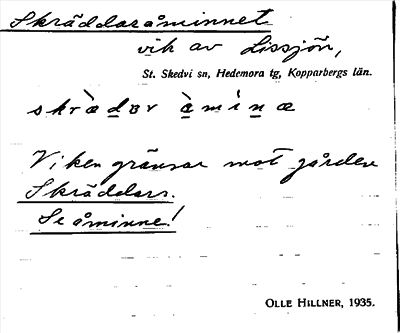 Skräddaråminnet
vik av Lissjön,
St. Skedvi sn, Hedemora tg, Kopparbergs län.
skræ̀dar æ̀minæ
Viken gränsar mot gården
Skräddars.
Se åminne!
OLLE HILLNER, 1935.